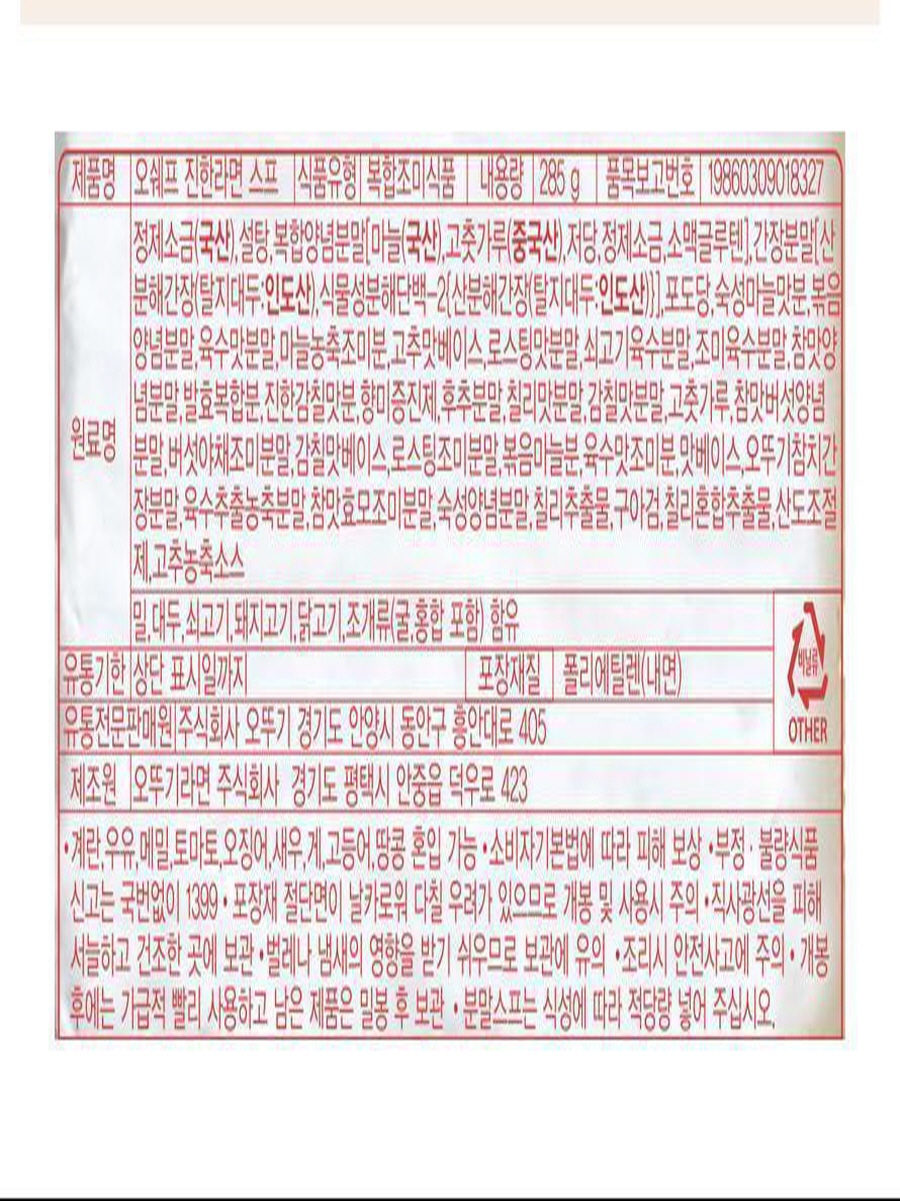 제품명 오쉐프 진한라면 스프 식품유형 복합조미식품 내용량 285 g 품목보고번호 19860309018327
원료명
정제소금(국산),설탕,복합양념분말[마늘(국산),고춧가루(중국산),저당,정제소금,소맥글루텐],간장분말[산
분해간장(탈지대두:인도산),식물성분해단백-2{산분해간장(탈지대두:인도산)}],포도당,숙성마늘맛분,볶음
양념분말,육수맛분말,마늘농축조미분,고추맛베이스,로스팅맛분말,쇠고기육수분말,조미육수분말,참맛양
념분말,발효복합분,진한감칠맛분,향미증진제,후추분말,칠리맛분말,감칠맛분말,고춧가루,참맛버섯양념
분말,버섯야채조미분말,감칠맛베이스,로스팅조미분말,볶음마늘분,육수맛조미분,맛베이스,오뚜기참치간
장분말,육수추출농축분말,참맛효모조미분말,숙성양념분말,칠리추출물,구아검,칠리혼합추출물,산도조절
제,고추농축소스
밀,대두,쇠고기,돼지고기,닭고기,조개류(굴,홍합 포함) 함유
유통기한 상단 표시일까지 포장재질 폴리에틸렌(내면)
비닐류
OTHER
유통전문판매원 주식회사 오뚜기 경기도 안양시 동안구 흥안대로 405
제조원 오뚜기라면 주식회사 경기도 평택시 안중읍 덕우로 423
•계란,우유,메밀,토마토,오징어,새우,게,고등어,땅콩 혼입 가능 •소비자기본법에 따라 피해 보상 •부정·불량식품
신고는 국번없이 1399 • 포장재 절단면이 날카로워 다칠 우려가 있으므로 개봉 및 사용시 주의 •직사광선을 피해
서늘하고 건조한 곳에 보관 •벌레나 냄새의 영향을 받기 쉬우므로 보관에 유의 •조리시 안전사고에 주의 • 개봉
후에는 가급적 빨리 사용하고 남은 제품은 밀봉 후 보관 • 분말스프는 식성에 따라 적당량 넣어 주십시오.